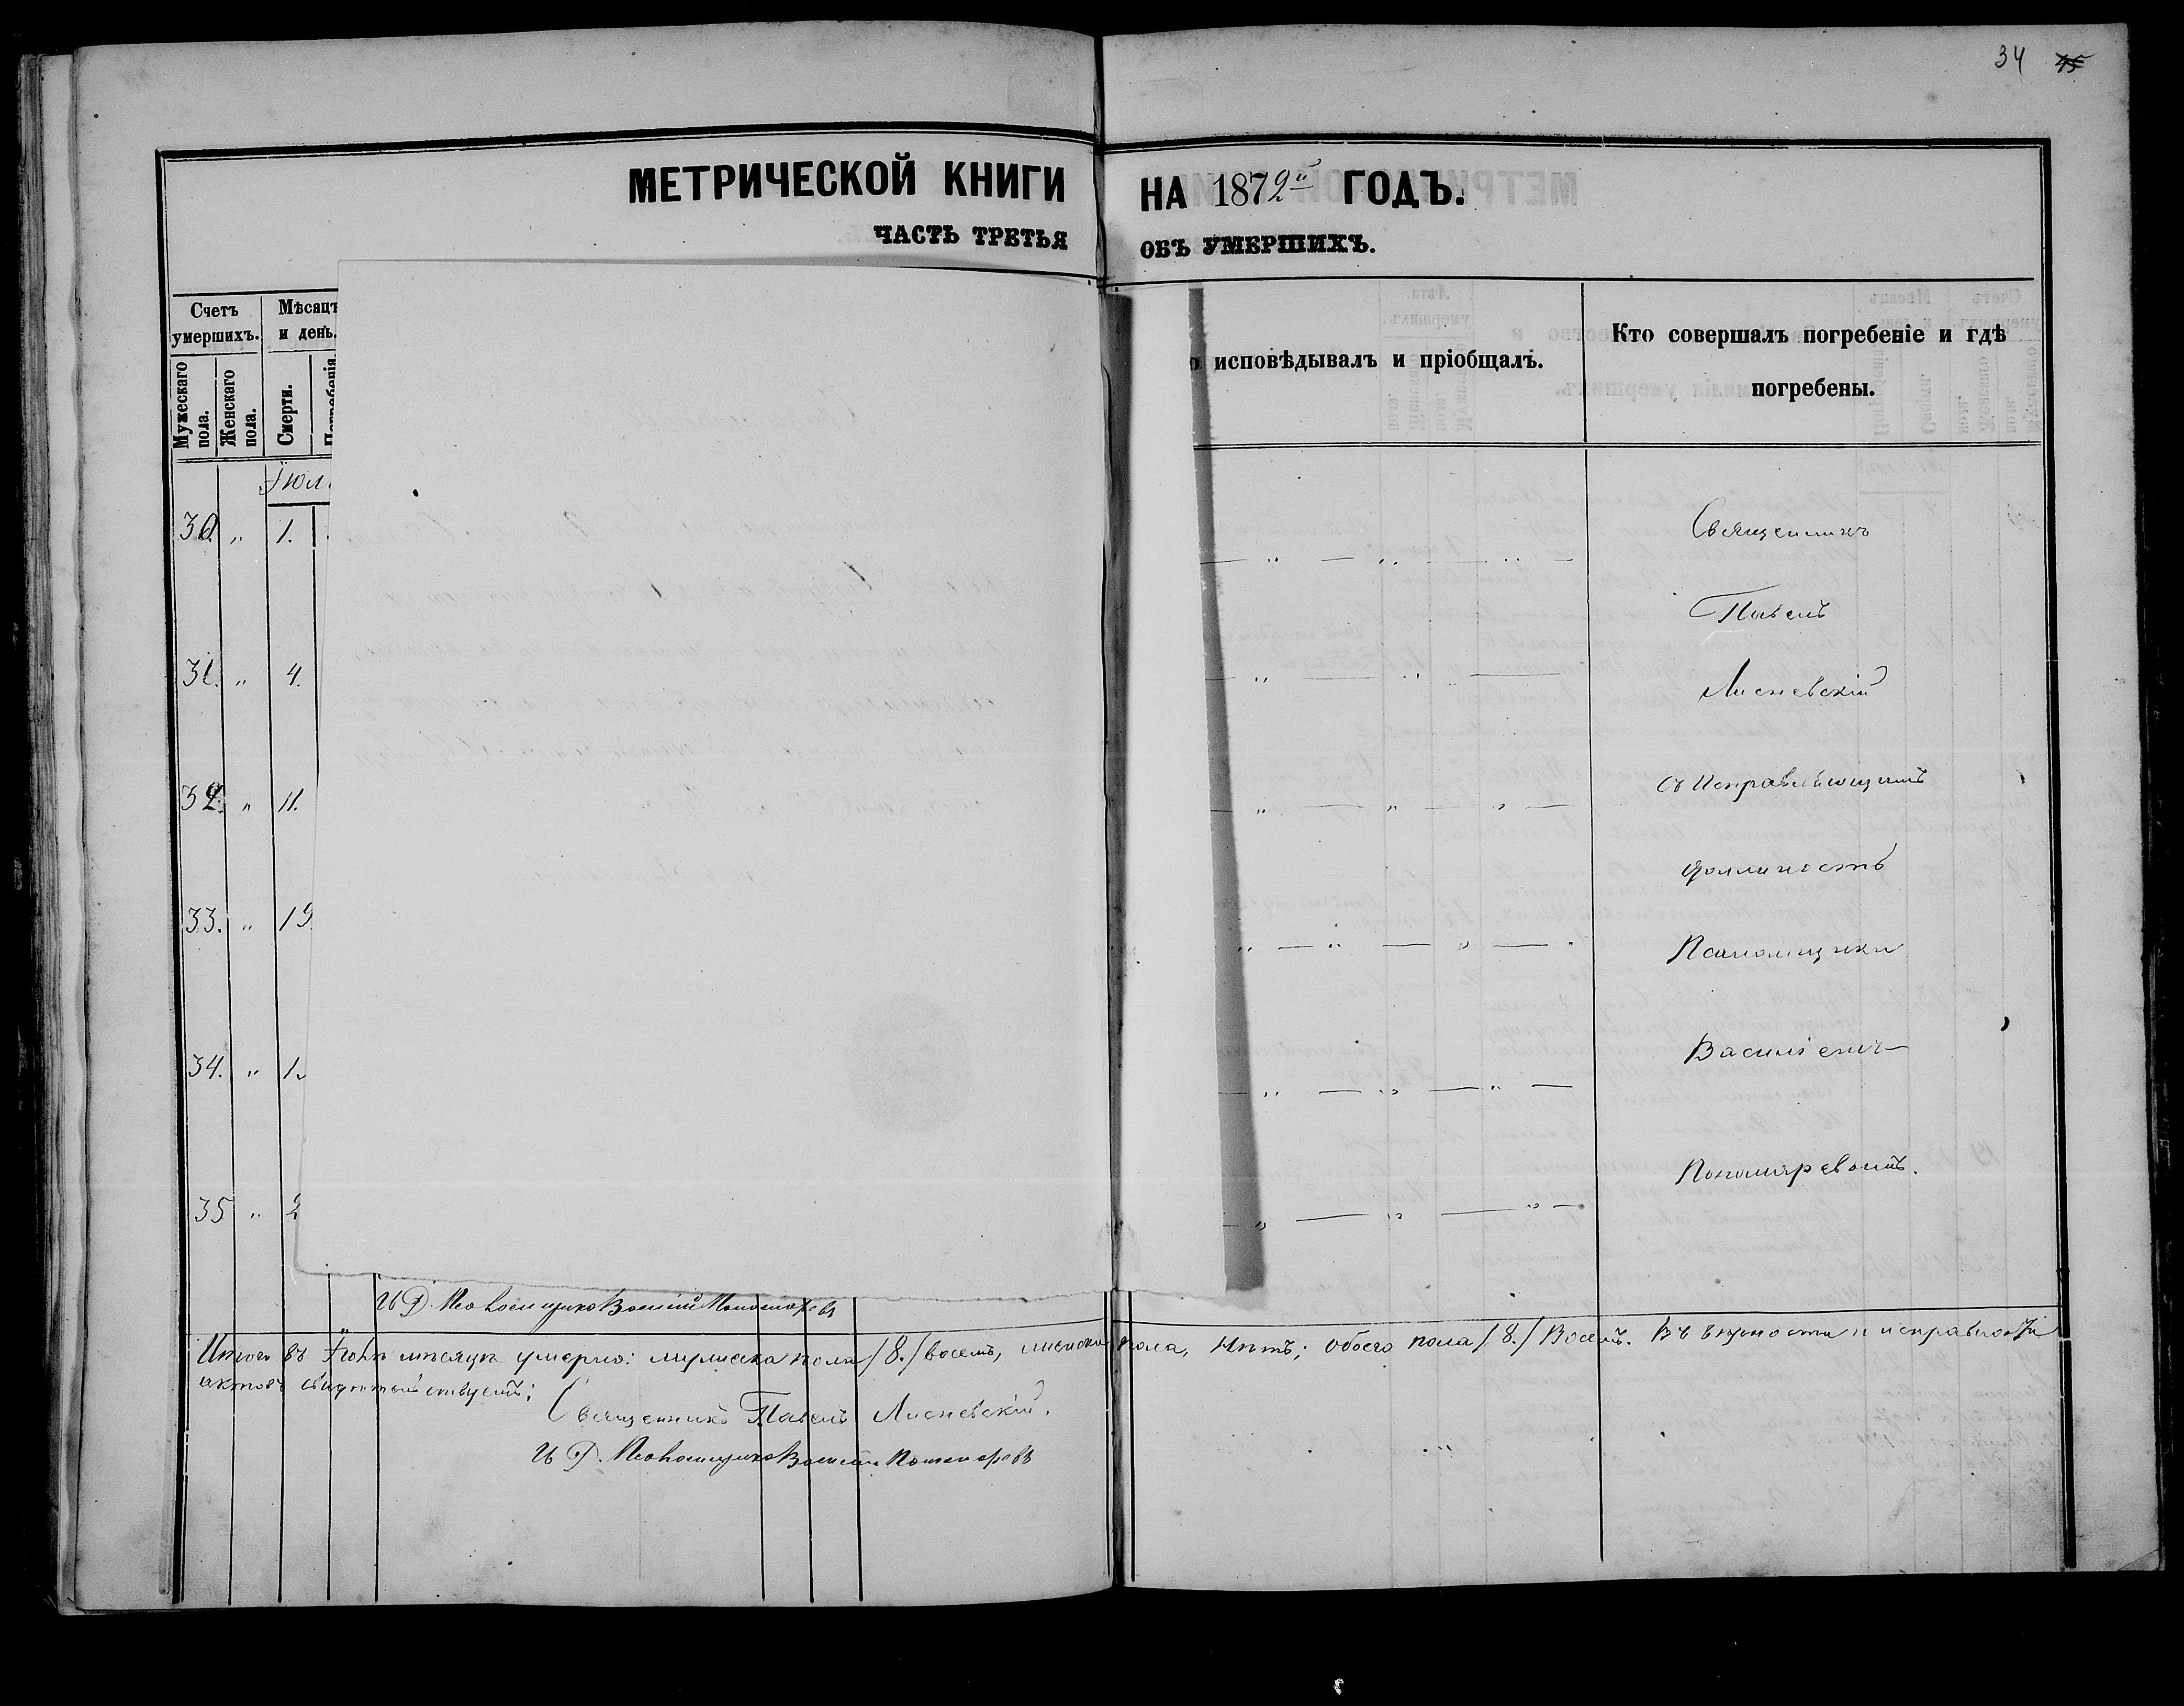 34 45
МЕТРИЧЕСКОЙ КНИГИ НА 1872й ГОДЪ.
ЧАСТЬ ТРЕТЬЯ ОБЪ УМЕРШИХЪ.
Счетъ умершихъ.
Мѣсяцъ и день.
Мужескаго пола.
Женскаго пола.
Смерти.
исповѣдывалъ и пріобщалъ.
Кто совершалъ погребеніе и гдѣ погребены.
Іюл
30. „ 1.
Священникъ
Павелъ
31. „ 4.
Лисневскій
32. „ 11.
съ Исправляющимъ
должность
33. „ 19
Псаломщика
34. „ 1
Василіемъ
35 „ 2
Пономаревымъ.
И Д. Псаломщика Василій Пономаревъ
Итого въ мѣсяцѣ умерло: мужеска пола /8./ восемь, женска пола, нѣтъ; обоего пола /8./ Восемь. Въ вѣрности и исправности
актовъ свидѣтельствуемъ:
Священникъ Павелъ Лисневскій.
И Д. Псаломщика Василій Пономаревъ